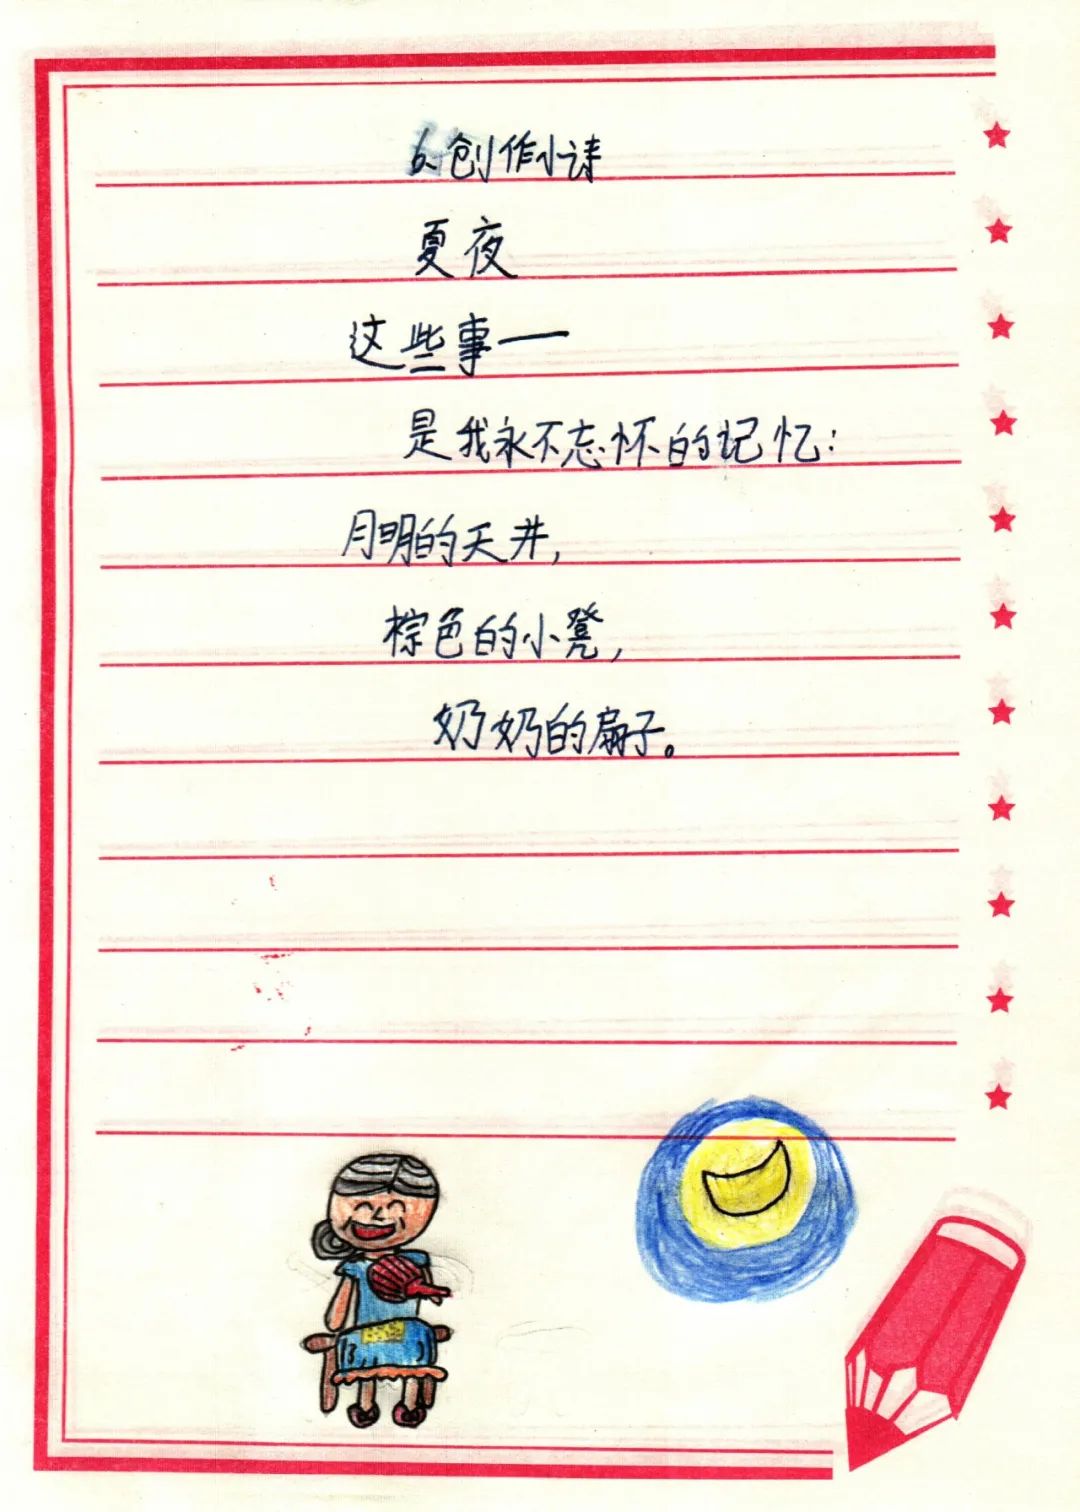 6、创作小诗
夏夜
这些事——
是我永不忘怀的记忆:
月明的天井,
棕色的小凳,
奶奶的扇子。